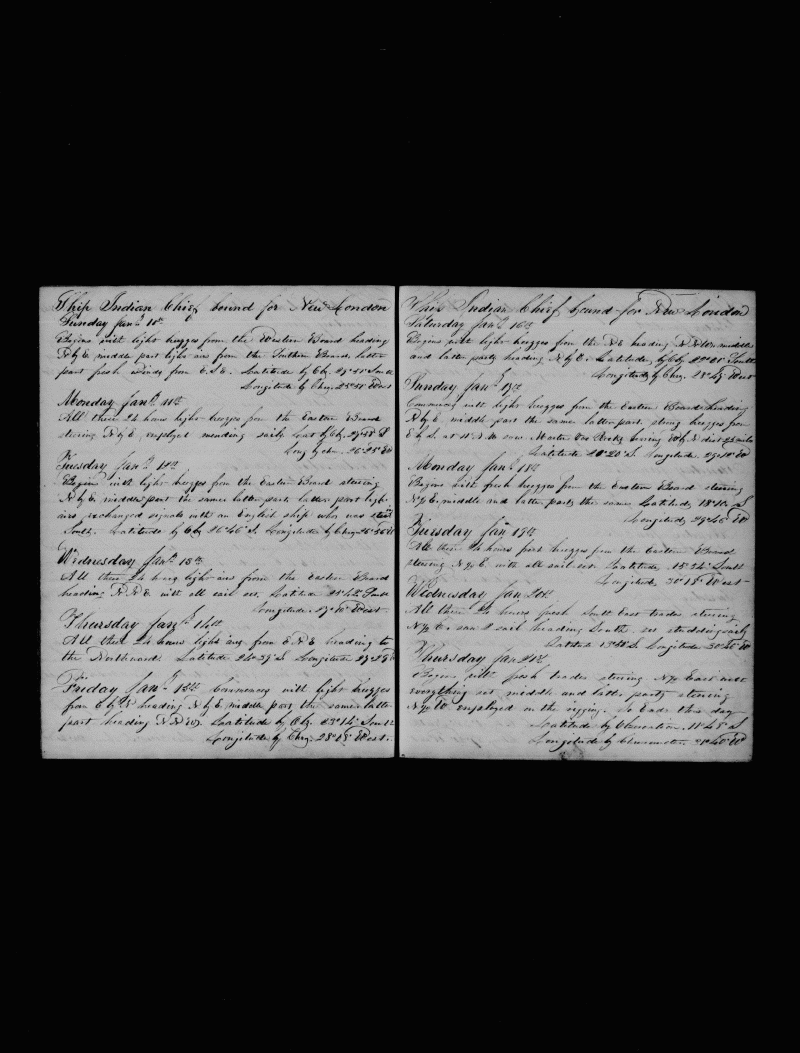 Ship Indian Chief bound for New London
Sunday Jany 10th
Begins with light breezes from the Western Board heading
N by E. middle part light airs from the Southern Board. latter
part fresh winds from E.S.E. Latitude by Obs South
Longitude by Chro. West
Monday Jany 11th
All these 24 hours light breezes from the Eastern Board
steering N by E employed mending sails Lat by Obs S
Long by chro. 26°25 W
Tuesday Jany 12th
Begins with light breezes from the Eastern Board steering
N by E. middle part the same latter part light
airs exchanged signals with an English ship who was
South. Latitude by Obs 26°46' S. Longitude by Chro 26°36 W
Wednesday Jany 13th
All these 24 hours light airs from the Eastern Board
heading N.N.E. with all sail set. Latitude South
Longitude 27°10' West
Thursday Jany 14th
All these 24 hours light airs from E.N.E heading to
the Northward. Latitude 24°39' S Longitude W
Friday Jany 15th Commences with light breezes
from E by N heading N by E middle part the same latter
part heading N.N.W. Latitude by Obs. 23°14' South
Longitude by Chro. 28°08' West.
Ship Indian Chief bound for New London
Saturday Jany 16th
Begins with light breezes from the N.E heading N.N.W. middle
and latter parts heading N by E. Latitude by Obs South
Longitude by Chro. 28°49' West
Sunday Jany 17th
Commences with light breezes from the Eastern Board heading
N by E. middle part the same latter part strong breezes from
E by S. at A.M saw Martin Vas Rocks bearing E by N dist 25 miles
Latitude 20°20' S Longitude 29°10' W
Monday Jany 18th
Begins with fresh breezes from the Eastern Board steering
N by E. middle and latter parts the same Latitude 18°10 S
Longitude 29°46' W
Tuesday Jany 19th
All these 24 hours fresh breezes from the Eastern Board
steering N by E. with all sail set. Latitude 15°34' South
Longitude 30°15' West
Wednesday Jany 20th
All these 24 hours fresh South East trades steering
N by E. saw a sail heading South. set studdingsails
Latitude 13°48' S. Longitude 30°40' W
Thursday Jany 21st
Begins with fresh trades steering N by East with
everything set middle and latter parts steering
N by W. employed on the rigging. So Ends this day
Latitude by Observation 11°48' S
Longitude by Chronometer W